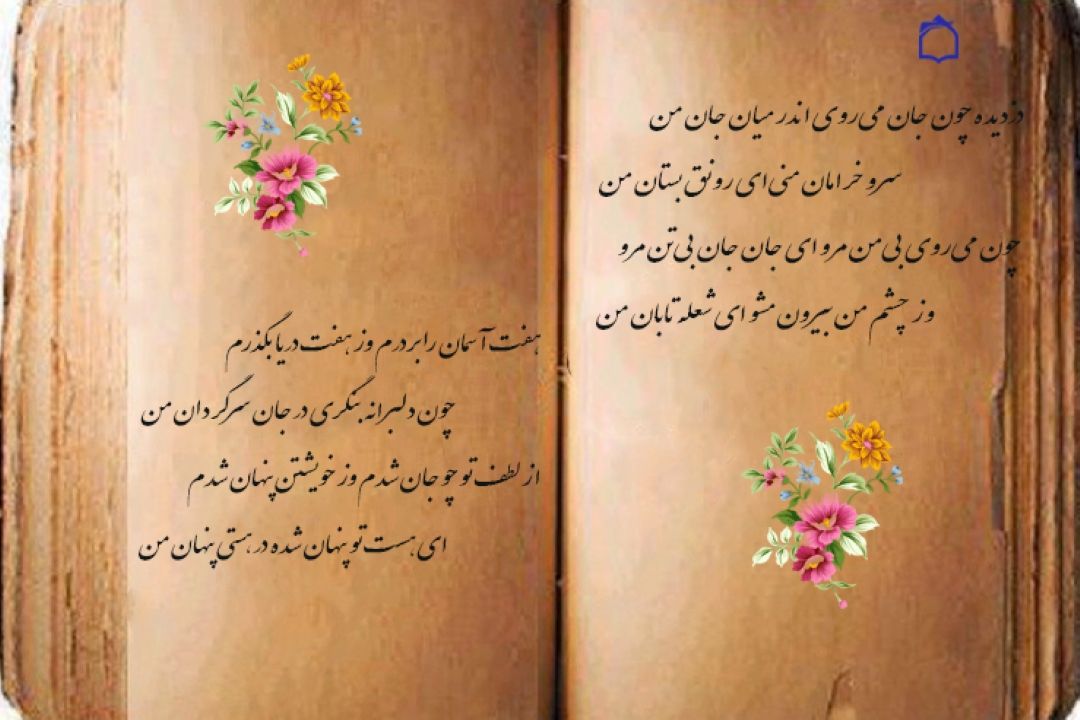 دزدیده چون جان می‌روی اندر میان جان من
سرو خرامان منی ای رونق بستان من
چون می‌روی بی‌من مرو ای جان جان بی‌تن مرو
وز چشم من بیرون مشو ای شعله تابان من
هفت آسمان را بردرم وز هفت دریا بگذرم
چون دلبرانه بنگری در جان سرگردان من
از لطف تو چو جان شدم وز خویشتن پنهان شدم
ای هست تو پنهان شده در هستی پنهان من